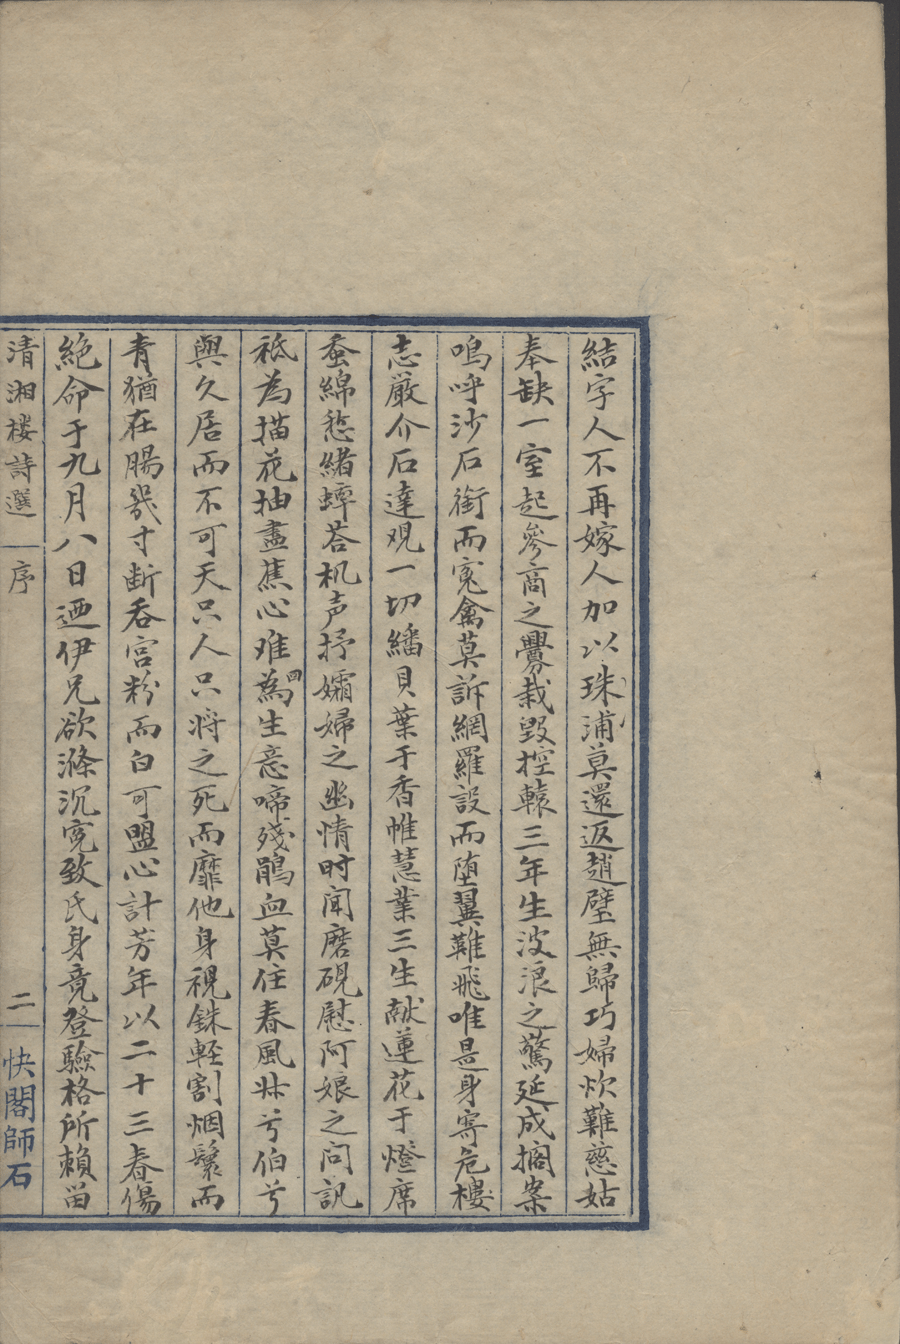 結字人不再嫁人加以珠浦莫還返趙璧無歸巧婦炊難慈姑
奉缺一室起參商之釁栽毀控轅三年生波浪之驚延成擱案
嗚呼沙石銜而寃禽莫訴網羅設而堕翼難飛唯是身寄危樓
志厳介石達观一切繙貝葉于香帷慧業三生献蓮花于燈席
蚕綿愁緒蟀荅机声抒孀婦之幽情时闻磨硯慰阿娘之问訊
祗為描花抽盡蕉心难為生意啼殘鵑血莫住春風叔兮伯兮
與久居而不可天只人只将之死而靡他身視銖軽割烟鬟而
青猶在腸幾寸断吞宫粉而白可盟心計芳年以二十三春傷
絶命于九月八日迺伊兄欲滌沉寃致氏身竟登驗格所賴畄
清湘楼詩選 序 二 快閣師石